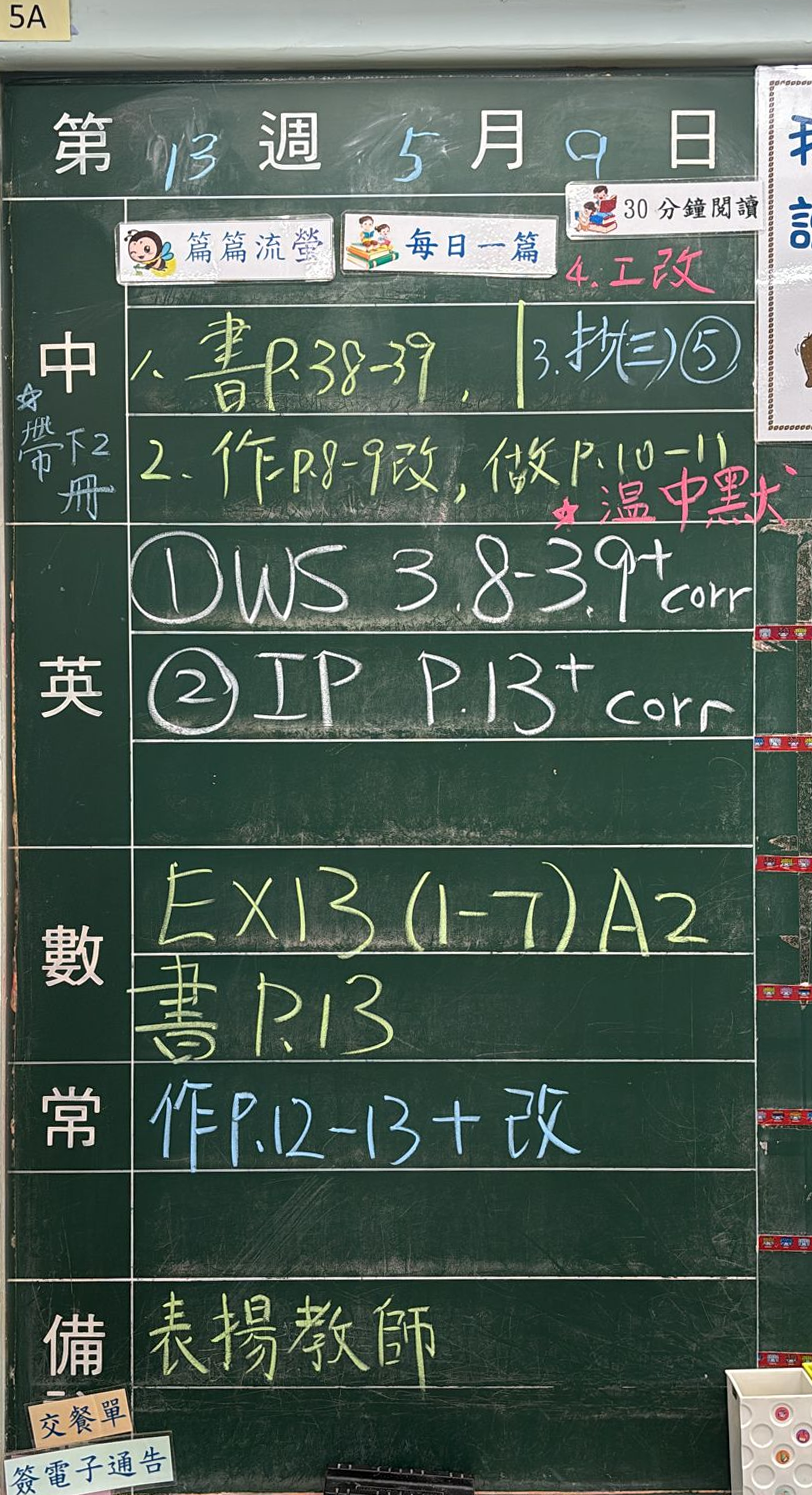 5A
第 13 週 5 月 9 日
篇篇流螢 每日一篇 30分鐘閱讀
4. 工改
中
1. 書P.38-39, 3. 抄(三)⑤
☆帶下2冊
2. 作P.8-9改, 做P.10-11
★溫中默
英
①WS 3.8-3.9+corr
②IP P.13+corr
數
EX13 (1-7) A2
書 P.13
常
作P.12-13+改
備
表揚教師
交餐單
簽電子通告